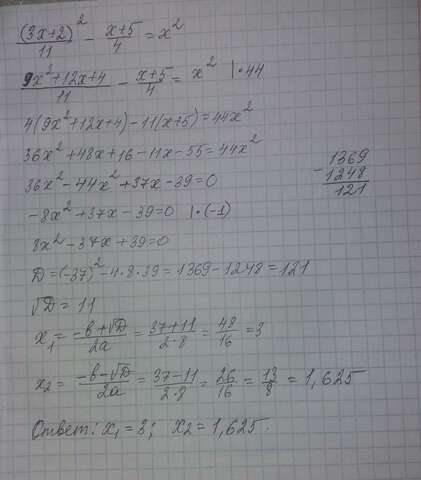 (3x+2)²/11 - (x+5)/4 = x²
(9x²+12x+4)/11 - (x+5)/4 = x² |·44
4(9x²+12x+4)-11(x+5)=44x²
36x²+48x+16-11x-55=44x²
36x²-44x²+37x-39=0
-8x²+37x-39=0 |·(-1)
8x²-37x+39=0
D=(-37)²-4·8·39=1369-1248=121
1369
-1248
121
√D=11
x₁=(-b+√D)/2a=(37+11)/(2·8)=48/16=3
x₂=(-b-√D)/2a=(37-11)/(2·8)=26/16=13/8=1,625
Ответ: x₁=3; x₂=1,625.